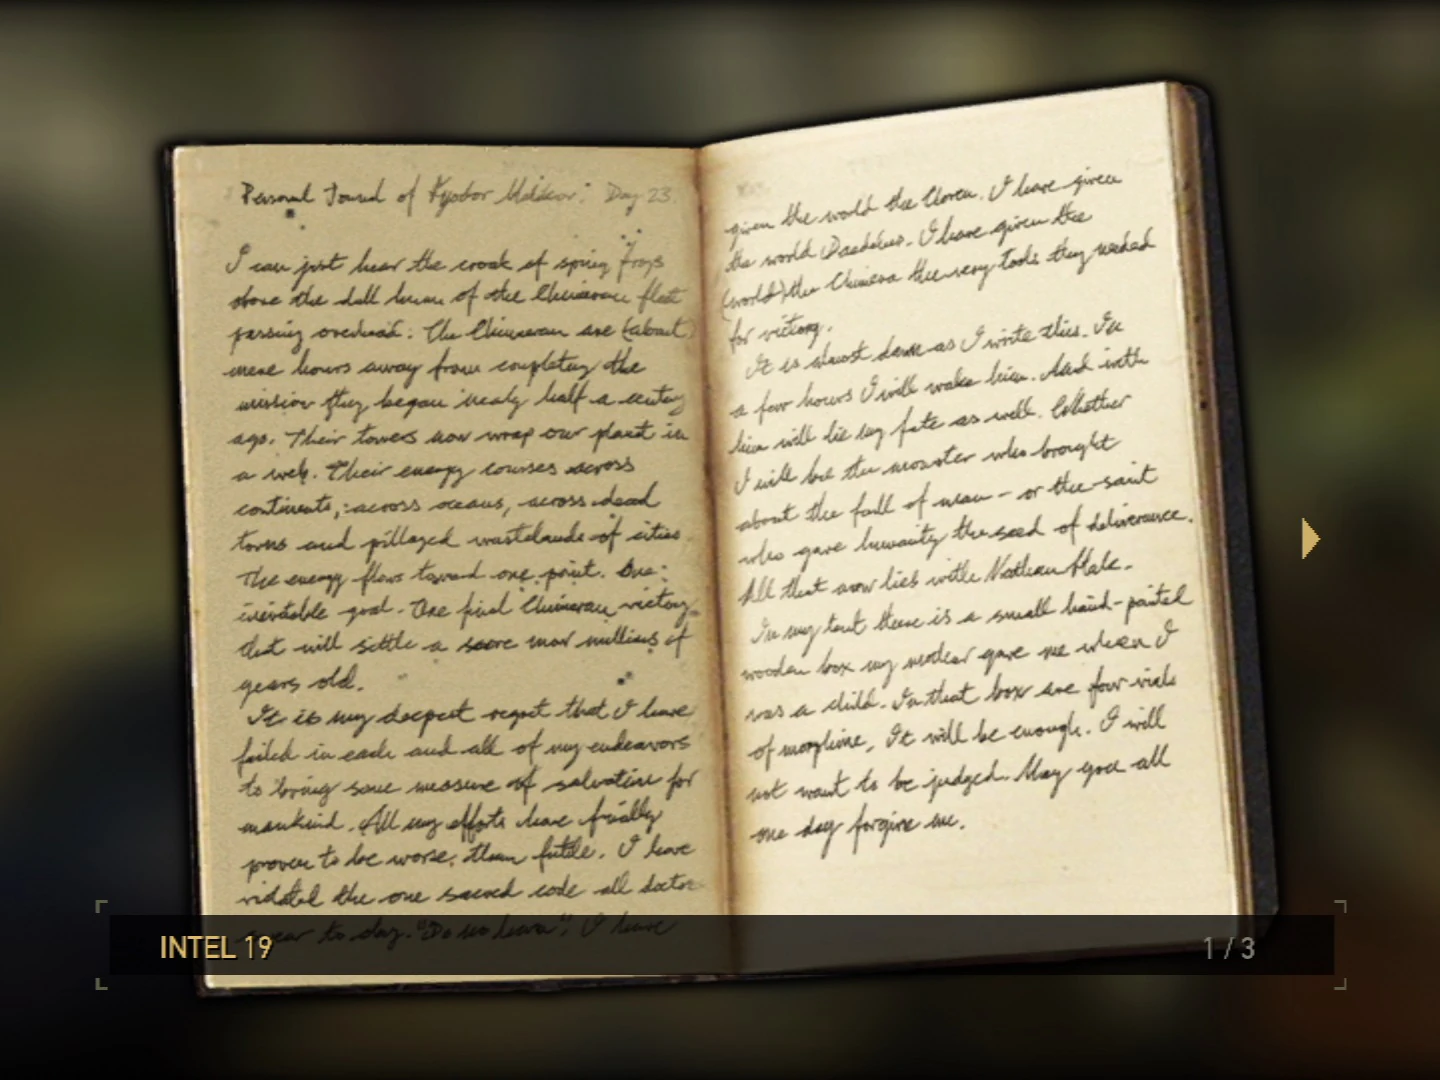 Personal Journal of Fyodor Malikov: Day 23
I can just hear the croak of spring frogs
above the dull hum of the Chimeran fleet
passing overhead. The Chimeran are (about)
mere hours away from completing the
mission they began nearly half a century
ago. Their towers now wrap our planet in
a web. Their energy courses across
continents, across oceans, across dead
towns and pillaged wastelands of cities.
The energy flows toward one point. One
inevitable goal. One final Chimeran victory
that will settle a score now millions of
years old.
It is my deepest regret that I have
failed in each and all of my endeavors
to bring some measure of salvation for
mankind. All my efforts have finally
proven to be worse than futile. I have
violated the one sacred code all doctors
swear to day. "Do no harm". I have
given the world the Cloven. I have given
the world Daedalus. I have given the
(world) the Chimera the very tools they needed
for victory.
It is almost dawn as I write this. In
a few hours I will wake him. And with
him will lie my fate as well. Whether
I will be the monster who brought
about the fall of man - or the saint
who gave humanity the seed of deliverance.
All that now lies with Nathan Hale.
In my tent there is a small hand-painted
wooden box my mother gave me when I
was a child. In that box are four vials
of morphine. It will be enough. I will
not want to be judged. May you all
one day forgive me.
INTEL 19
1 / 3